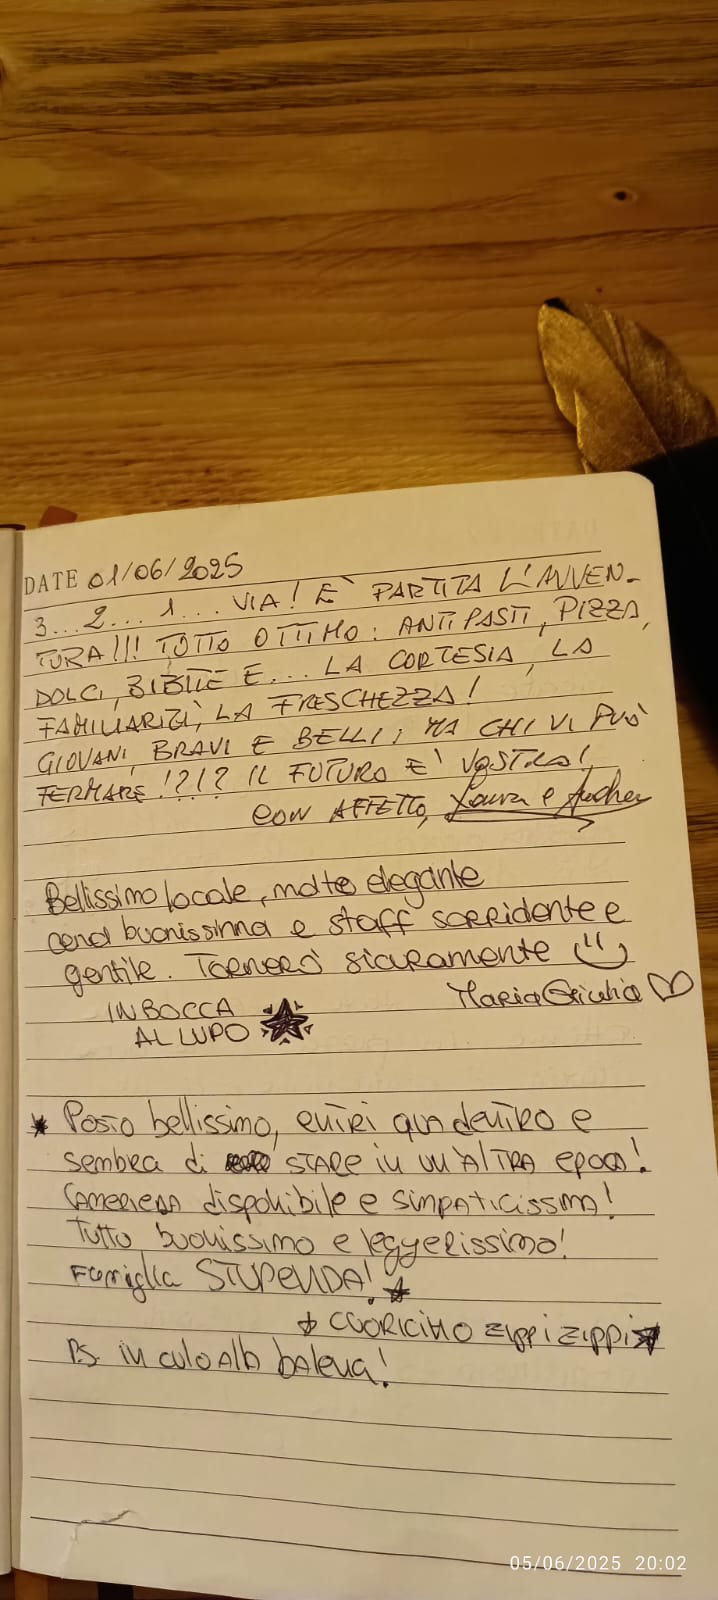 DATE 01/06/2025
3...2...1...VIA! E' PARTITA L'AVVEN-
TURA!!! TUTTO OTTIMO: ANTIPASTI, PIZZA,
DOLCI, BIBITE E... LA CORTESIA, LA
FAMILIARITÀ, LA FRESCHEZZA!
GIOVANI, BRAVI E BELLI; MA CHI VI PUÒ
FERMARE!?!? IL FUTURO E' VOSTRO!
CON AFFETTO, Laura e Andrea
Bellissimo locale, molto elegante
cena buonissima e staff sorridente e
gentile. Tornerò sicuramente
IN BOCCA MariaGiulia
AL LUPO
Posto bellissimo, entri qua dentro e
sembra di STARE in un'ALTRA epoca!
CAMERIERA disponibile e simpaticissima!
Tutto buonissimo e leggerissimo!
Famiglia STUPENDA!
CUORICINO ZIPPIZIPPI
PS in culo alla balena!
05/06/2025 20:02